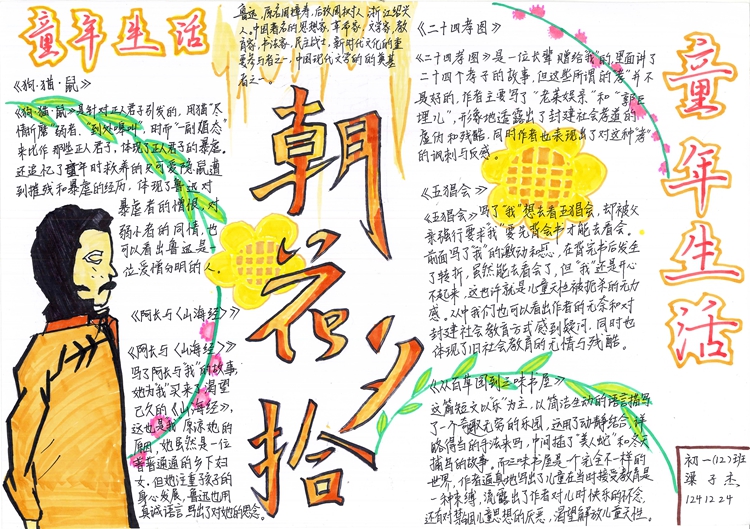 童年生活
鲁迅，原名周樟寿，后改周树人，浙江绍兴
人。中国著名的思想家、革命家、文学家、教
育家、书法家、民主战士，新时代文化的重
要参与者之一，中国现代文学的的奠基
者之一。
《狗·猫·鼠》
《狗·猫·鼠》是针对正人君子引发的，用猫"尽
情折磨"弱者，"到处嗥叫"，时而"一副媚态"
来比作那些正人君子，体现了正人君子的暴虐。
还追忆了童年时救养的久可爱隐鼠遭
到摧残和暴虐的经历，体现了鲁迅对
暴虐者的憎恨，对
弱小者的同情，也
可以看出鲁迅是一
位爱憎分明的人。
《阿长与《山海经》》
《阿长与《山海经》》
写了阿长与"我"的故事，
她为"我"买来了渴望
已久的《山海经》，
这也是"我"原谅她的
原因，她虽然是一位
普普通通的乡下妇
女，但她注重孩子的
身心发展，鲁迅也用
真诚语言写出了对她的思念。
朝花夕拾
《二十四孝图》
《二十四孝图》是一位长辈赠给"我"的，里面讲了
二十四个孝子的故事，但这些所谓的"孝"并不
是好的，作者主要写了"老莱娱亲"和"郭巨
埋儿"，形象地透露出了封建社会孝道的
虚伪和残酷，同时作者也表现出了对这种"孝"
的讽刺与反感。
《五猖会》
《五猖会》写了"我"想去看五猖会，却被父
亲强行要求"我"要先背会书才能去看会，
前面写了"我"的激动和
，在背完书后发生
了转折，虽然能去看会了，但"我"还是开心
不起来，这也许就是儿童天性被扼杀的无力
感。从中我们也可以看出作者的无奈和对
封建社会教育方式感到疑问，同时也
体现了旧社会教育的无情与残酷。
《从百草园到三味书屋》
这篇短文以"乐"为主，以简洁生动的语言描写
了一个奇趣无穷的乐园，运用了动静结合，详
略得当的手法来写，中间插了"美人蛇"和冬天
捕鸟的故事，而三味书屋是一个完全不一样的
世界，作者逼真地写出了儿童在当时接受教育是
一种束缚，流露出了作者对儿时快乐的怀念，
还有对禁锢儿童思想的厌恶，渴望解放儿童天性。
童年生活
初一(12)班
梁子杰
1241224